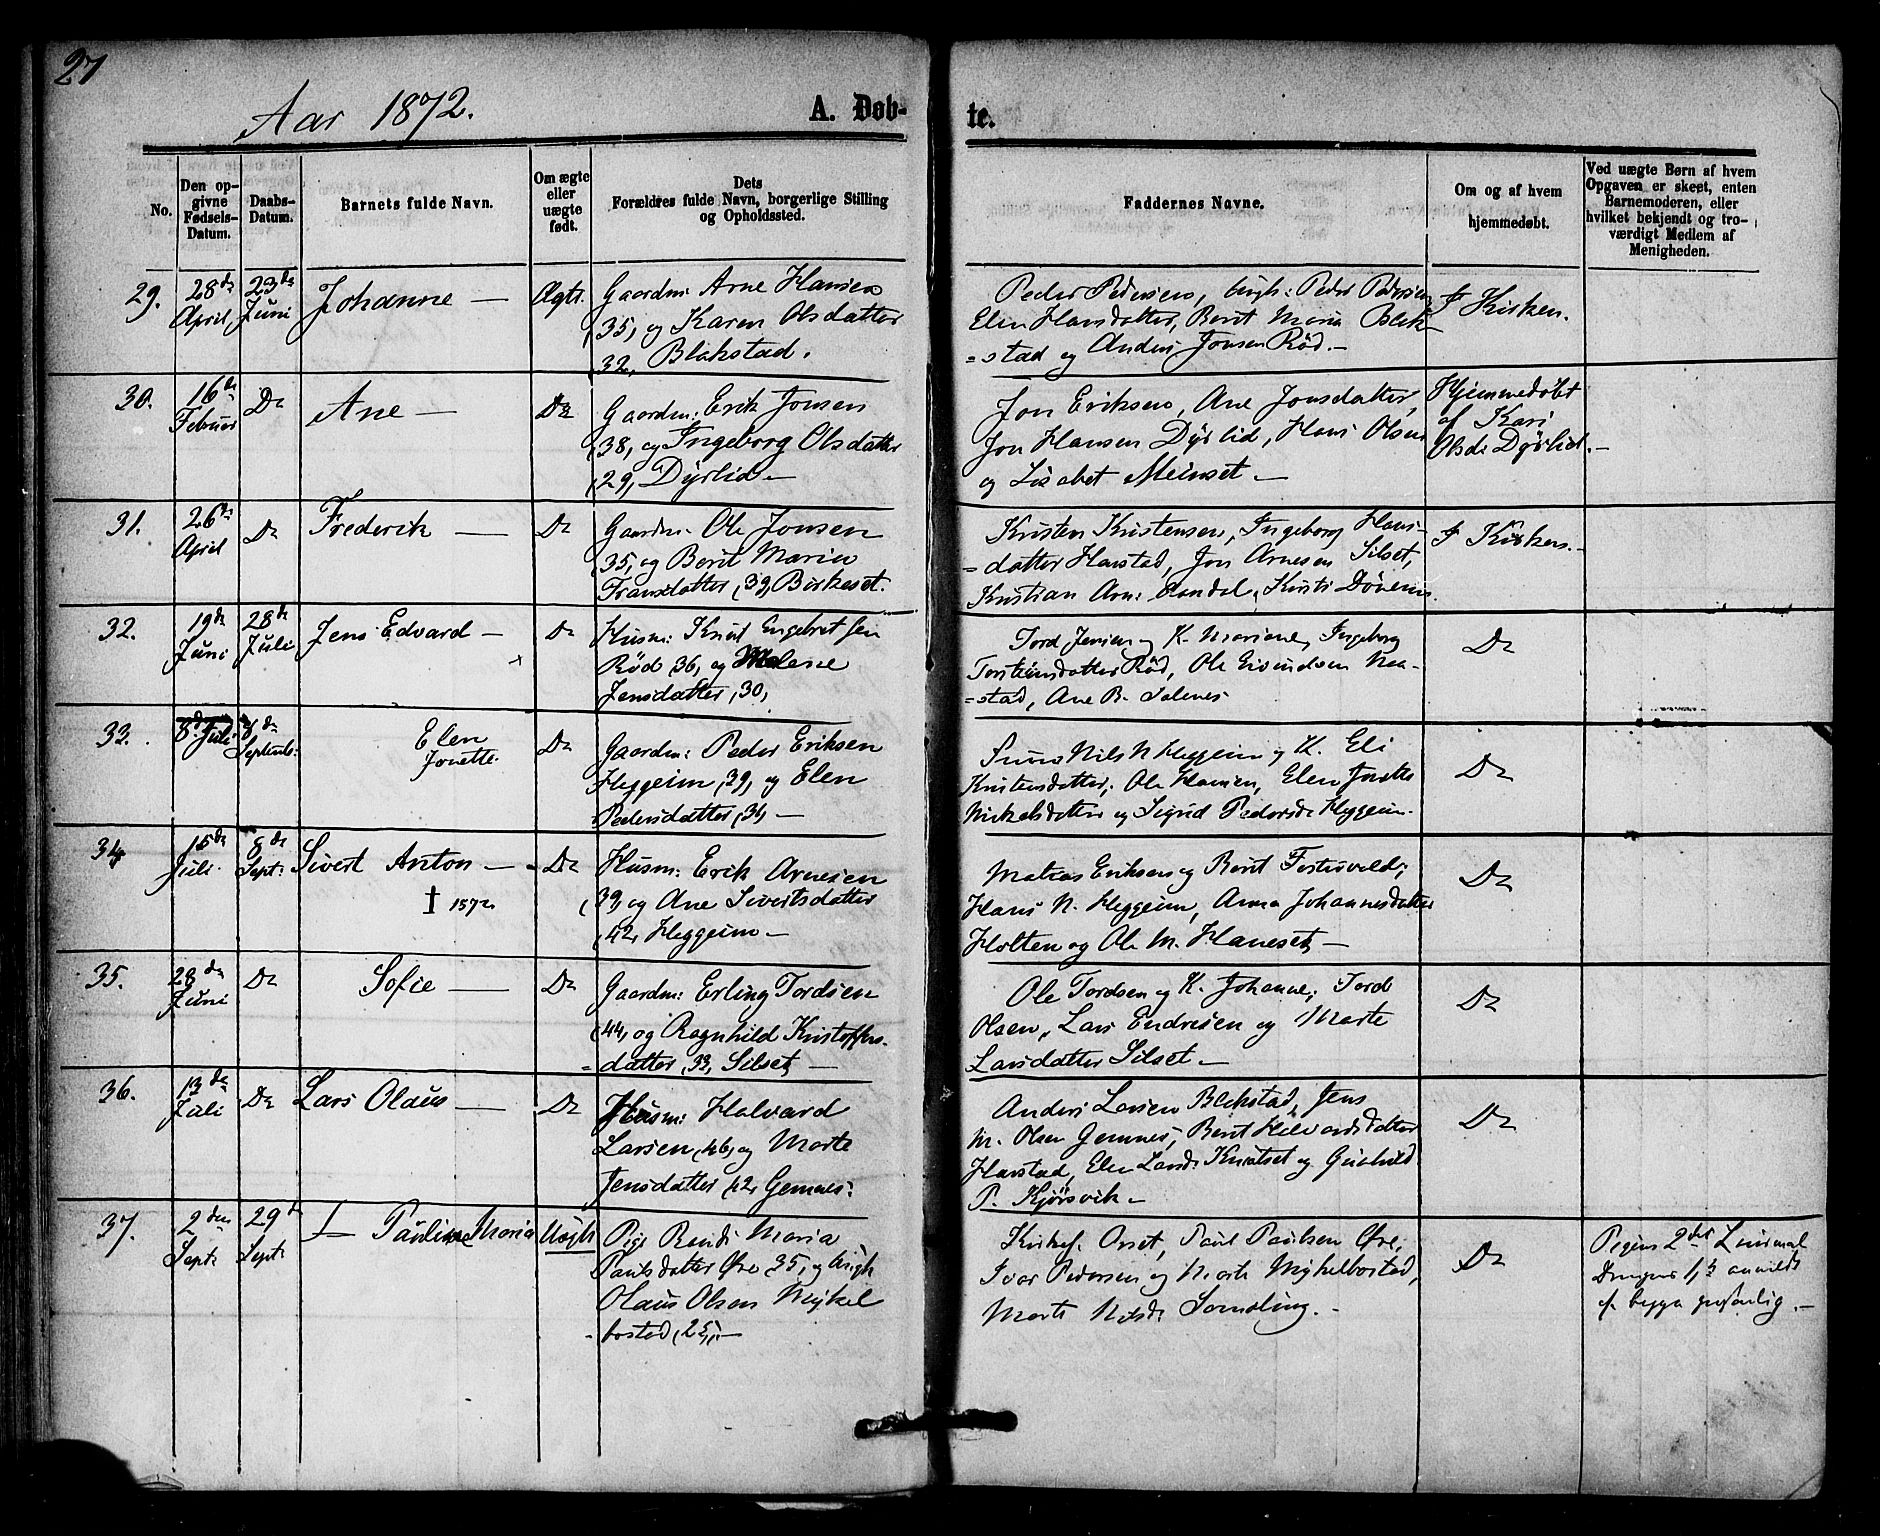 27
Aar 1872.
A. Døb-
te.
No.
Den op-
givne
Fødsels-
Datum.
Daabs-
Datum.
Barnets fulde Navn.
Om ægte
eller
uægte
født.
Dets
Forældres fulde Navn, borgerlige Stilling
og Opholdssted.
Faddernes Navne.
Om og af hvem
hjemmedøbt.
Ved uægte Børn af hvem
Opgaven er skeet, enten
Barnemoderen, eller
hvilket bekjendt og tro-
værdigt Medlem af
Menigheden.
29.
28de
April
23de
Juni
Johanne —
Ægte
Gaardm: Arne Hansen
35, og Karen Olsdatter
32, Blakstad.
Peder Pedersen, Peder Pedersen
Elen Hansdatter, Berit Maria Blak-
=stad og Anders Jonsen Rød. —
I Kirken.
30.
16de
Februar
Do
Ane —
Do
Gaardm: Erik Jonsen
38, og Ingeborg Olsdatter
29, Dyrlid —
Jon Eriksen, Ane Jonsdatter,
Jon Hansen Dyrlid, Hans Olsen
og Lisabet Meinset —
Hjemmedøbt
af Kari
Olsd: Dyrlid. —
31.
26de
April
Do
Frederik —
Do
Gaardm: Ole Jonsen
35, og Berit Maria
Fransdatter, 39, Birkeset.
Kristen Kristensen, Ingeborg Hans-
=datter Harstad, Jon Arnesen Silset,
Kristian Arn:
I Kirken. —
32.
19de
Juni
28de
Juli
Jens Edvard —
Do
Husm: Knut Engebretsen
Rød 36, og Malene
Jensdatter, 30,
Tord Jensen og K. Mariane, Ingeborg
Torsteinsdatter Rød, Ole Eivindsen Naa-
=stad, Ane B. Solenes
Do
33.
8de Juli
de
Septemb:
Elen
Jonette.
Do
Gaardm: Peder Eriksen
Heggeim, 39, og Elen
Pedersdatter, 31, —
Nils N. Heggeim og K. Eli
Kristensdatter, Ole Hansen, Elen Jonetta
Nickelsdatter og Sigrid Pedersd: Heggeim.
Do
34.
15de
Juli.
8de
Sept:
Sivert Anton —
† 1872
Do
Husm: Erik Arnesen
39, og Ane Sivertsdatter
42, Heggeim —
Matias Eriksen og Berit
Hans N. Heggeim, Anna Johannesdatter
Holten og Ole M. Haneset, —
Do
35.
28de
Juni
Do
Sofie —
Do
Gaardm: Erling Tordsen
44, og Ragnhild Kristoffers-
=datter, 33, Silset, —
Ole Tordsen og K. Johanne, Tord
Olsen, Lars Endresen og Marte
Larsdatter Silset —
Do
36.
13de
Juli
Do
Lars Olaus —
Do
Husm: Halvard
Larsen, 46, og Marte
Jensdatter, 42, Gemnes.
Anders Larsen Blakstad, Jens
M. Olsen Gemnes, Berit Halvardsdatter
Harstad, Elen Larsd: og Gunhild
P. Kjørsvik —
Do
37.
2den
Sept:
29
Sept:
Pauline Maria
Uægte
Pige Maria
Paulsdatter Øre, 35, og
Olaus Olsen Mykel
=bostad, 25, —
Orset, Paul Paulsen Øre,
Ivar Pedersen og Marte Mykelbostad,
Marte Nilsd: —
Do
Pigens 2det